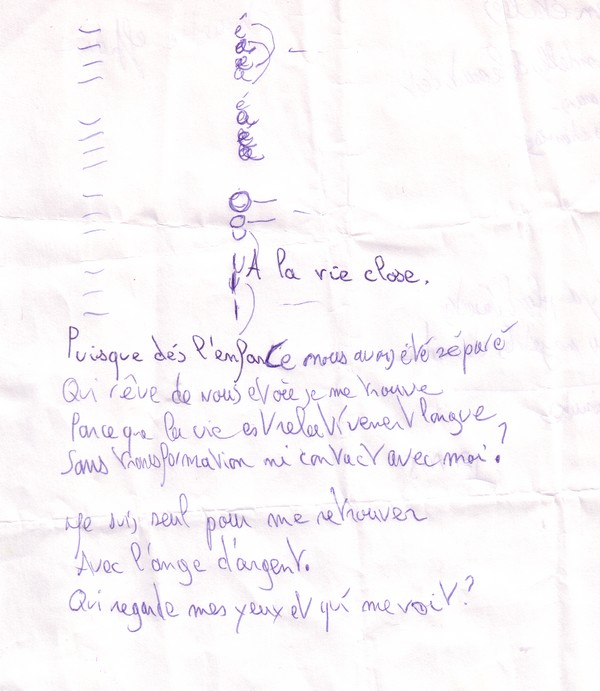 é
a
é
é
é
a
é
é
A la vie close.
Puisque dés l'enfance nous avons été séparé
Qui rêve de vous et où je me trouve
Parce que la vie est relativement longue
Sans transformation ni contact avec moi ?
Je suis seul pour me retrouver
Avec l'ange d'argent.
Qui regarde mes yeux et qui me voit ?